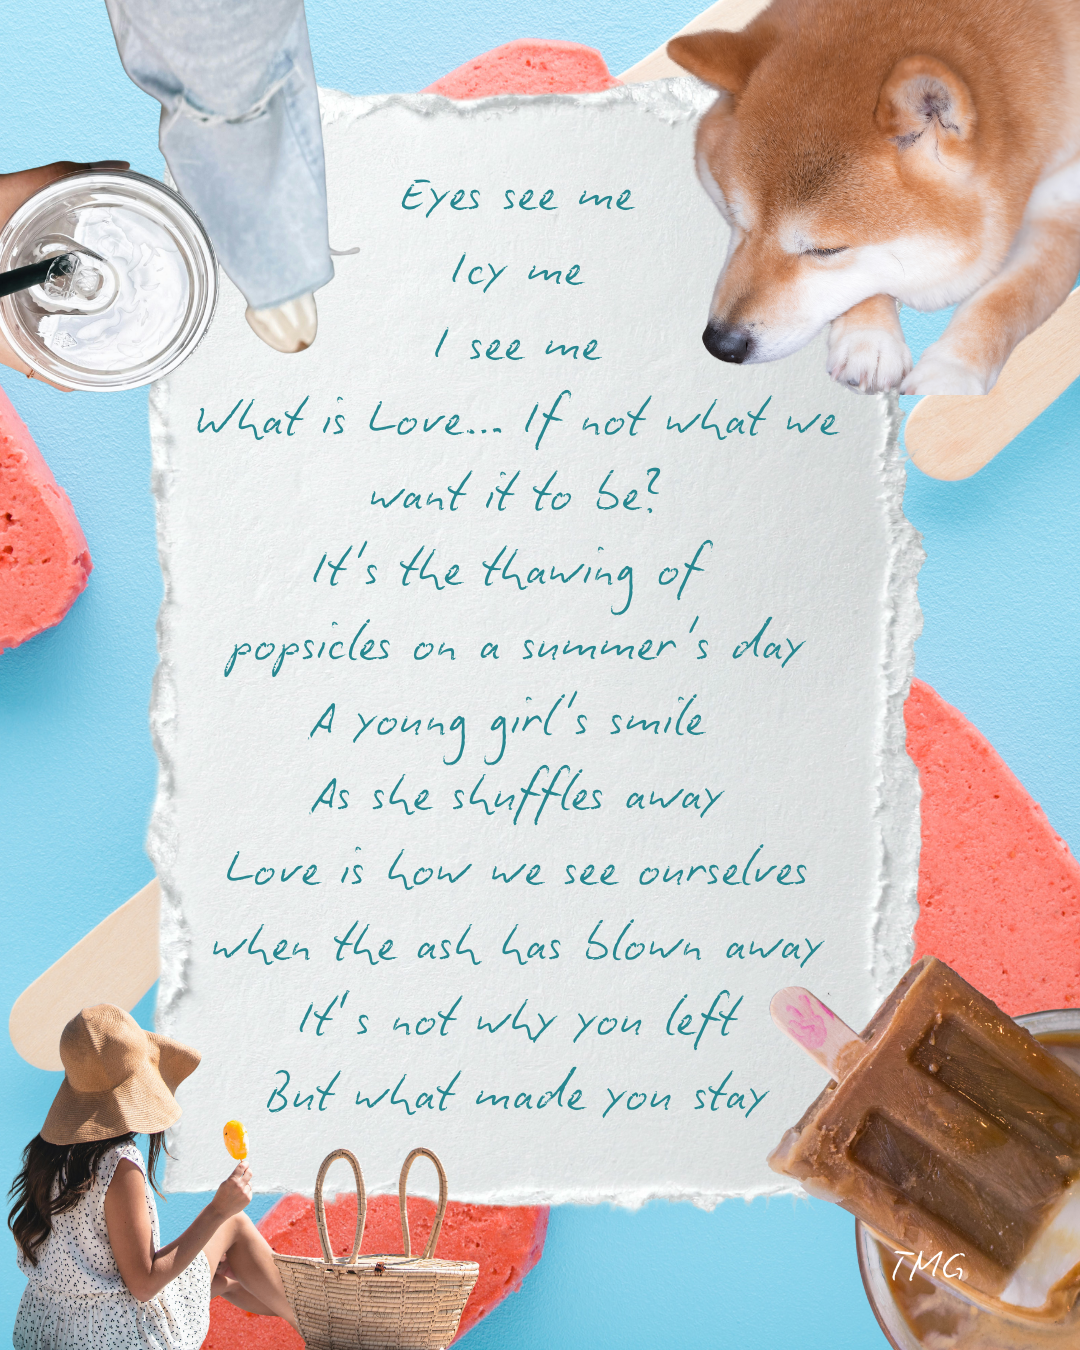 Eyes see me
Icy me
I see me
What is Love... If not what we
want it to be?
It's the thawing of
popsicles on a summer's day
A young girl's smile
As she shuffles away
Love is how we see ourselves
when the ash has blown away
It's not why you left
But what made you stay
TMG